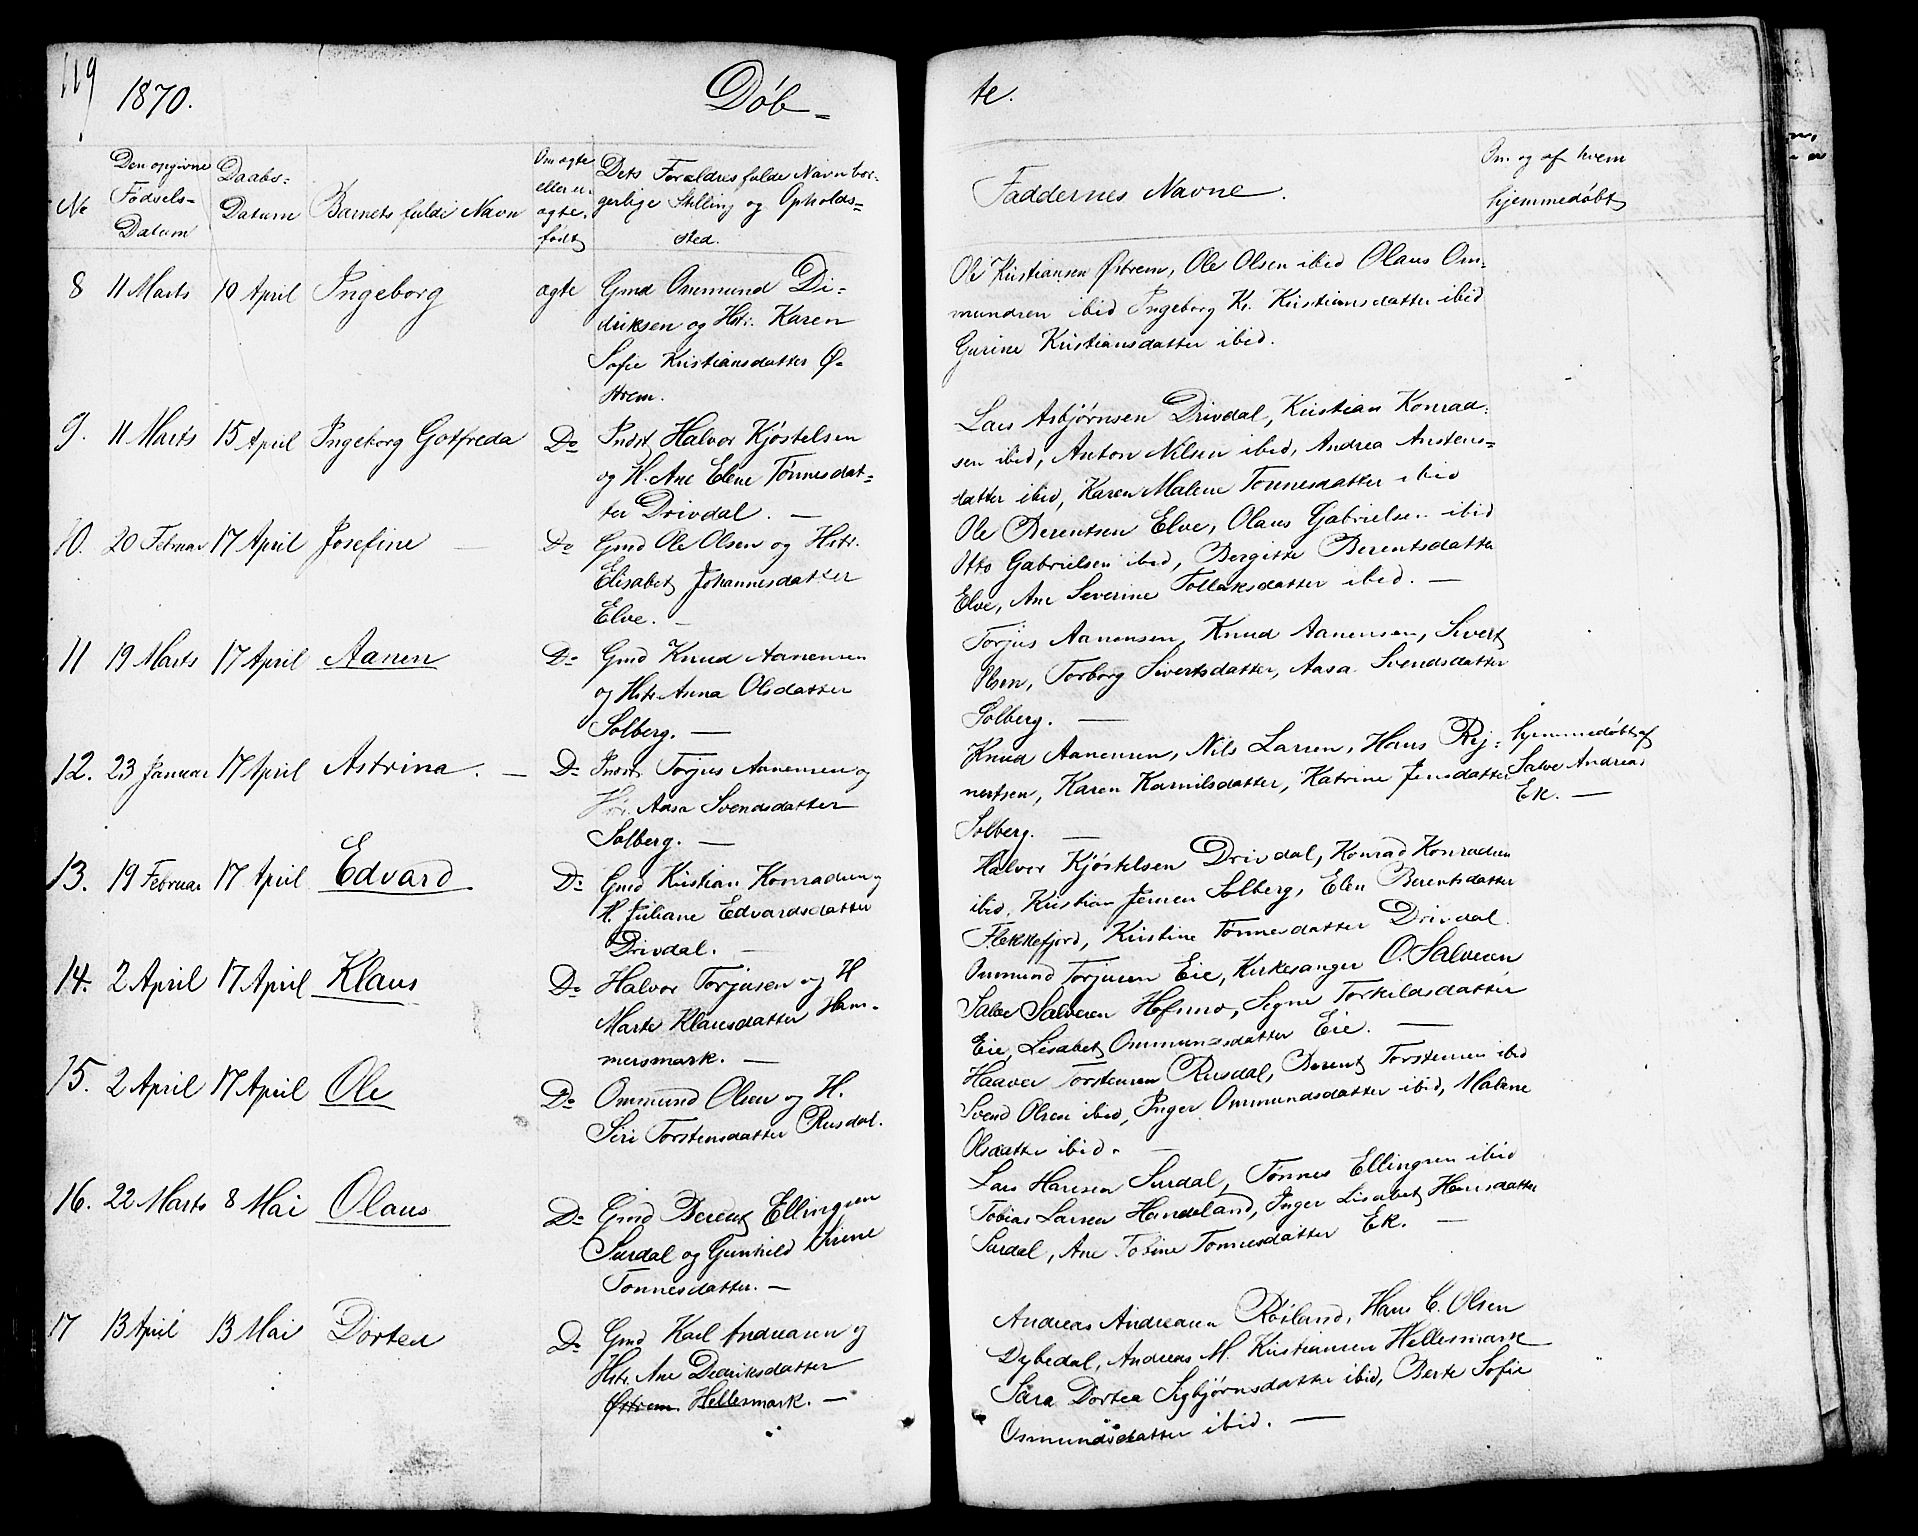 119
1870.
Døb-
te.
No
Den opgivne
Fødsels-
Datum
Daabs-
Datum
Barnets fulde Navn
Om ægte
eller u-
ægte
født
Dets Forældres fulde Navn bor-
gerlige Stilling og Opholds-
sted.
Faddernes Navne.
Om og af hvem
hjemmedøbt
8 11 Marts 10 April Ingeborg ægte Gmd Ommund Di-
driksen og Hstr. Karen
Sofie Kristiansdatter Ø-
strem.
Ole Kristiansen Østrem, Ole Olsen ibid Olaus Om-
mundsen ibid Ingeborg K. Kristiansdatter ibid
Gurine Kristiansdatter ibid.
9. 11 Marts 15 April Ingeborg Gotfreda Do Indst Halvor Kjøstelsen
og H. Ane Elene Tønnesdat-
ter Drivdal. —
Lars Asbjørnsen Drivdal, Kristian Konrad-
sen ibid, Anton Nilsen ibid, Andrea Austens-
datter ibid, Karen Malene Tønnesdatter ibid
10. 20 Februar 17 April Josefine — Do Gmd Ole Olsen og Hstr.
Elisabet Johannesdatter
Elve. —
Ole Berentsen Elve, Olaus Gabrielsen ibid
Otto Gabrielsen ibid, Bergitte Berentsdatter
Elve, Ane Severine Tollaksdatter ibid. —
11 19 Marts 17 April Aanen Do Gmd Knud Aanensen
og Hstr. Anna Olsdatter
Solberg. —
Torjus Aanensen, Knud Aanensen, Sivert
Olsen, Torborg Sivertsdatter, Aasa Svendsdatter
Solberg. —
12. 23 Januar 17 April Astrina. — Do Indst. Torjus Aanensen og
Hstr. Aasa Svendsdatter
Solberg. —
Knud Aanensen, Nils Larsen, Hans Rej-
nertsen, Karen Kornilsdatter, Katrine Jensdatter
Solberg. —
hjemmedøbt af
Salve Andreas
Ek. —
13. 19 Februar 17 April Edvard Do Gmd Kristian Konradsen og
H. Juliane Edvardsdatter
Drivdal. —
Halvor Kjøstelsen Drivdal, Konrad Konradsen
ibid, Kristian Jensen Solberg, Elen Berentsdatter
Flekkefjord, Kristine Tønnesdatter Drivdal.
14. 2 April 17 April Klaus Do Halvor Torjusen og H
Marte Klausdatter Ham-
mersmark. —
Ommund Torjusen Eie, Kirkesanger O. Salvesen
Salve Salvesen Hofsmo, Signe Torkildsdatter
Eie, Lisabet Ommundsdatter Eie. —
15. 2 April 17 April Ole Do Ommund Olsen og H.
Siri Torstensdatter Rusdal.
Haaver Torstensen Rusdal, Berent Torstensen ibid
Svend Olsen ibid, Inger Ommundsdatter ibid, Malene
Olsdatter ibid. —
16. 22 Marts 8 Mai Olaus Do Gmd Berent Ellingsen
Surdal og Gunhild Sirene
Tønnesdatter. —
Lars Hansen Surdal, Tønnes Ellingsen ibid
Tobias Larsen Handeland, Inger Lisabet Hansdatter
Surdal, Ane Tobine Tønnesdatter Ek. —
17 13 April 13 Mai Dortea Do Gmd Karl Andreasen og
Hstr. Ane Dedriksdatter
Østrem Hellesmark. —
Andreas Andreasen Røiland, Hans C. Olsen
Dybedal, Andreas M. Kristiansen Hellesmark
Sara Dortea Sigbjørnsdatter ibid, Berte Sofie
Osmundsdatter ibid. —